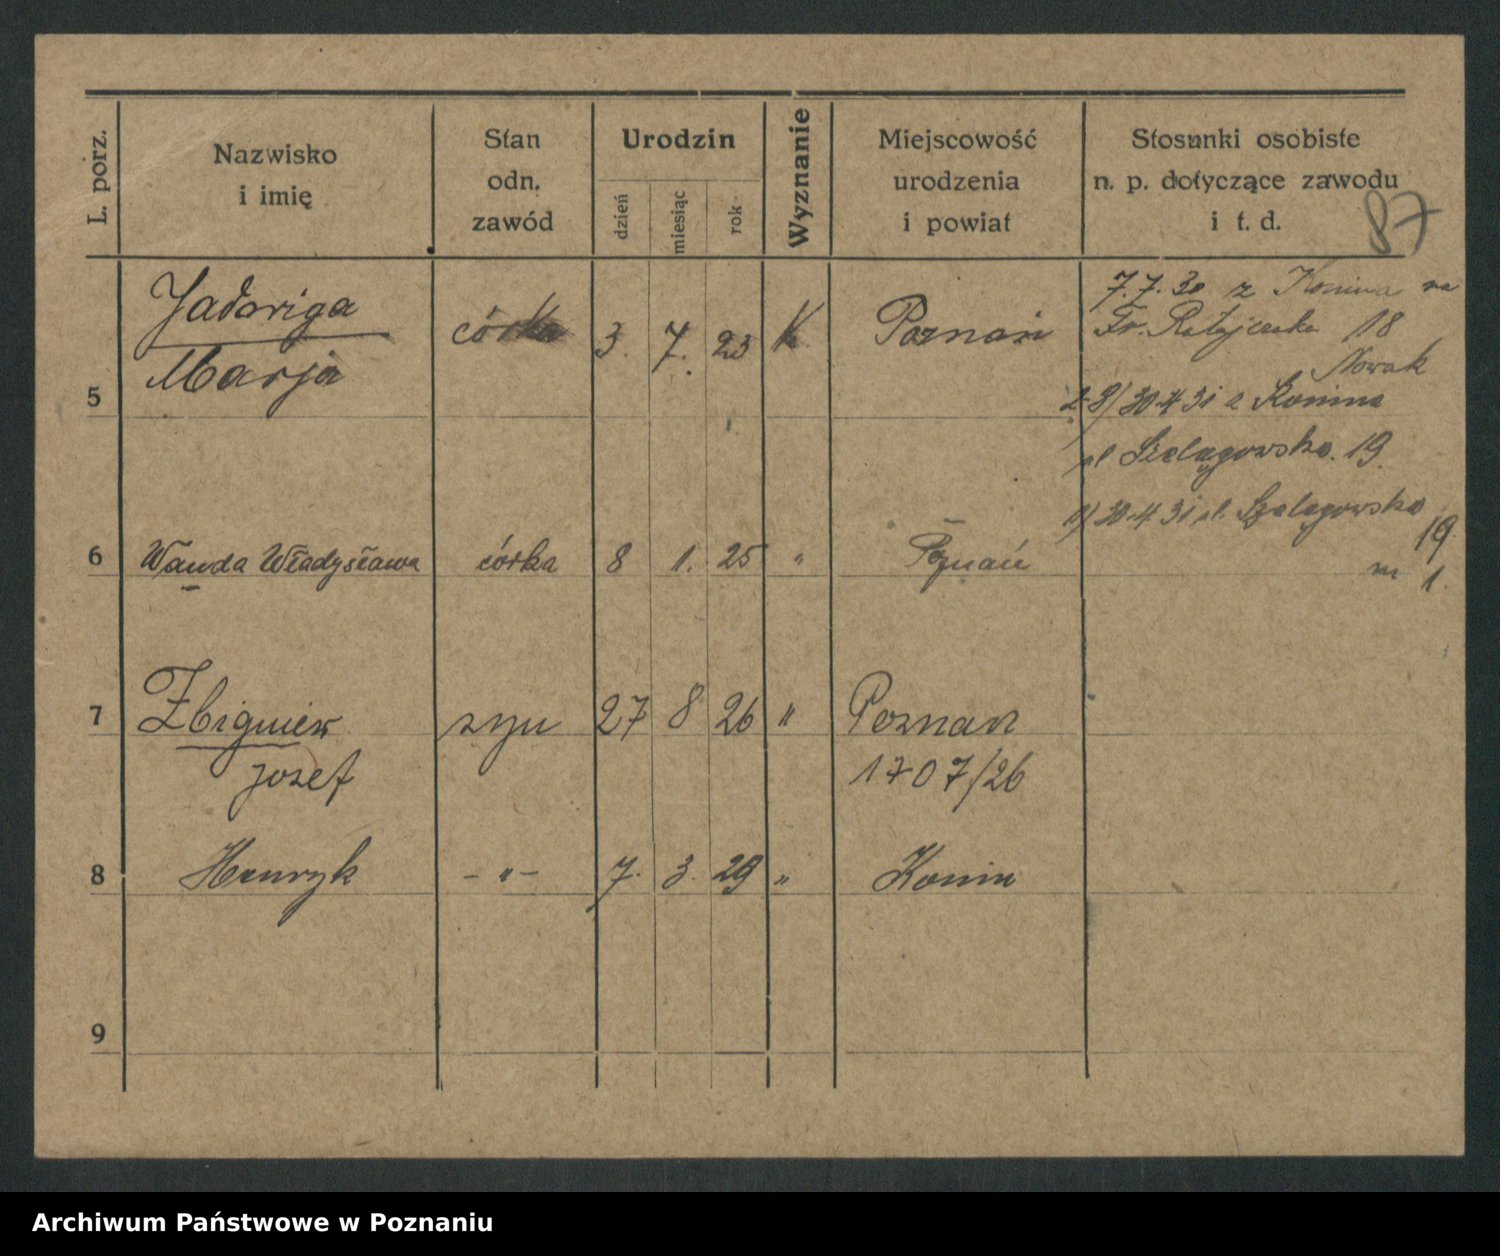 L. porz.
Nazwisko
i imię
Stan
odn.
zawód
Urodzin
dzień
miesiąc
rok
Wyznanie
Miejscowość
urodzenia
i powiat
Stosunki osobiste
n. p. dotyczące zawodu
i t. d.
87
5 Jadwiga córka 3. 7. 23 K Poznań
Marja
7.7.30 z Konina na
Fr. Ratajczaka 18
Nowak
2-8/ 30.4 31 z Konina
ul Szelągowska. 19.
6 Wanda Władysława córka 8 1. 25 " Poznań
1/ 30.4 31 ul. Szelągowska
19
m 1.
7 Zbigniew syn 27 8 26 " Poznań
Jozef 1707/26
8 Henryk – " – 7. 3. 29 " Konin
9
Archiwum Państwowe w Poznaniu